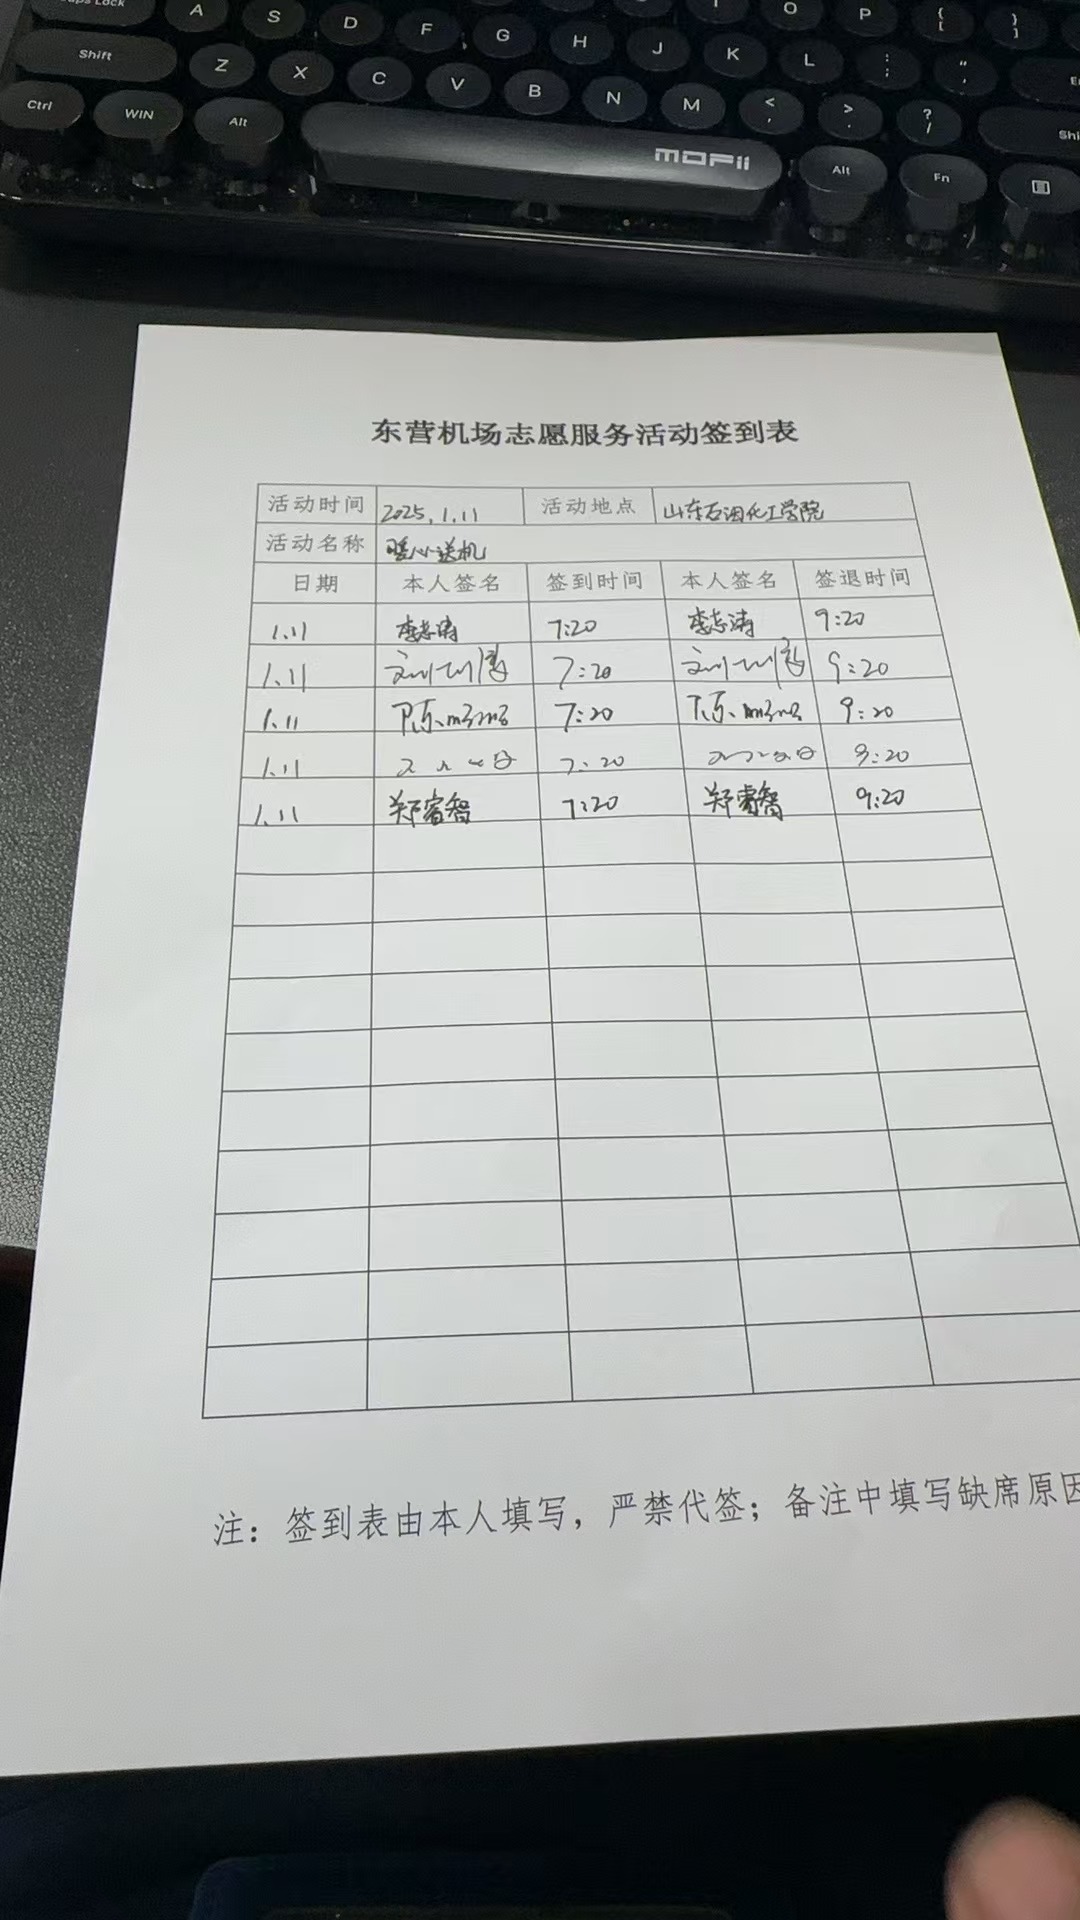 Caps Lock A S D F G H J K L : ; " ,
O P { [ } ]
Shift Z X C V B N M < , > . ? /
Ctrl WIN Alt MOFII Alt Fn
东营机场志愿服务活动签到表
活动时间 2025.1.11 活动地点 山东石油化工学院
活动名称 暖心送机
日期 本人签名 签到时间 本人签名 签退时间
1.11 李志涛 7:20 李志涛 9:20
1.11 7:20 9:20
1.11 7:20 9:20
1.11 7:20 9:20
1.11 郑睿智 7:20 郑睿智 9:20
注：签到表由本人填写，严禁代签；备注中填写缺席原因